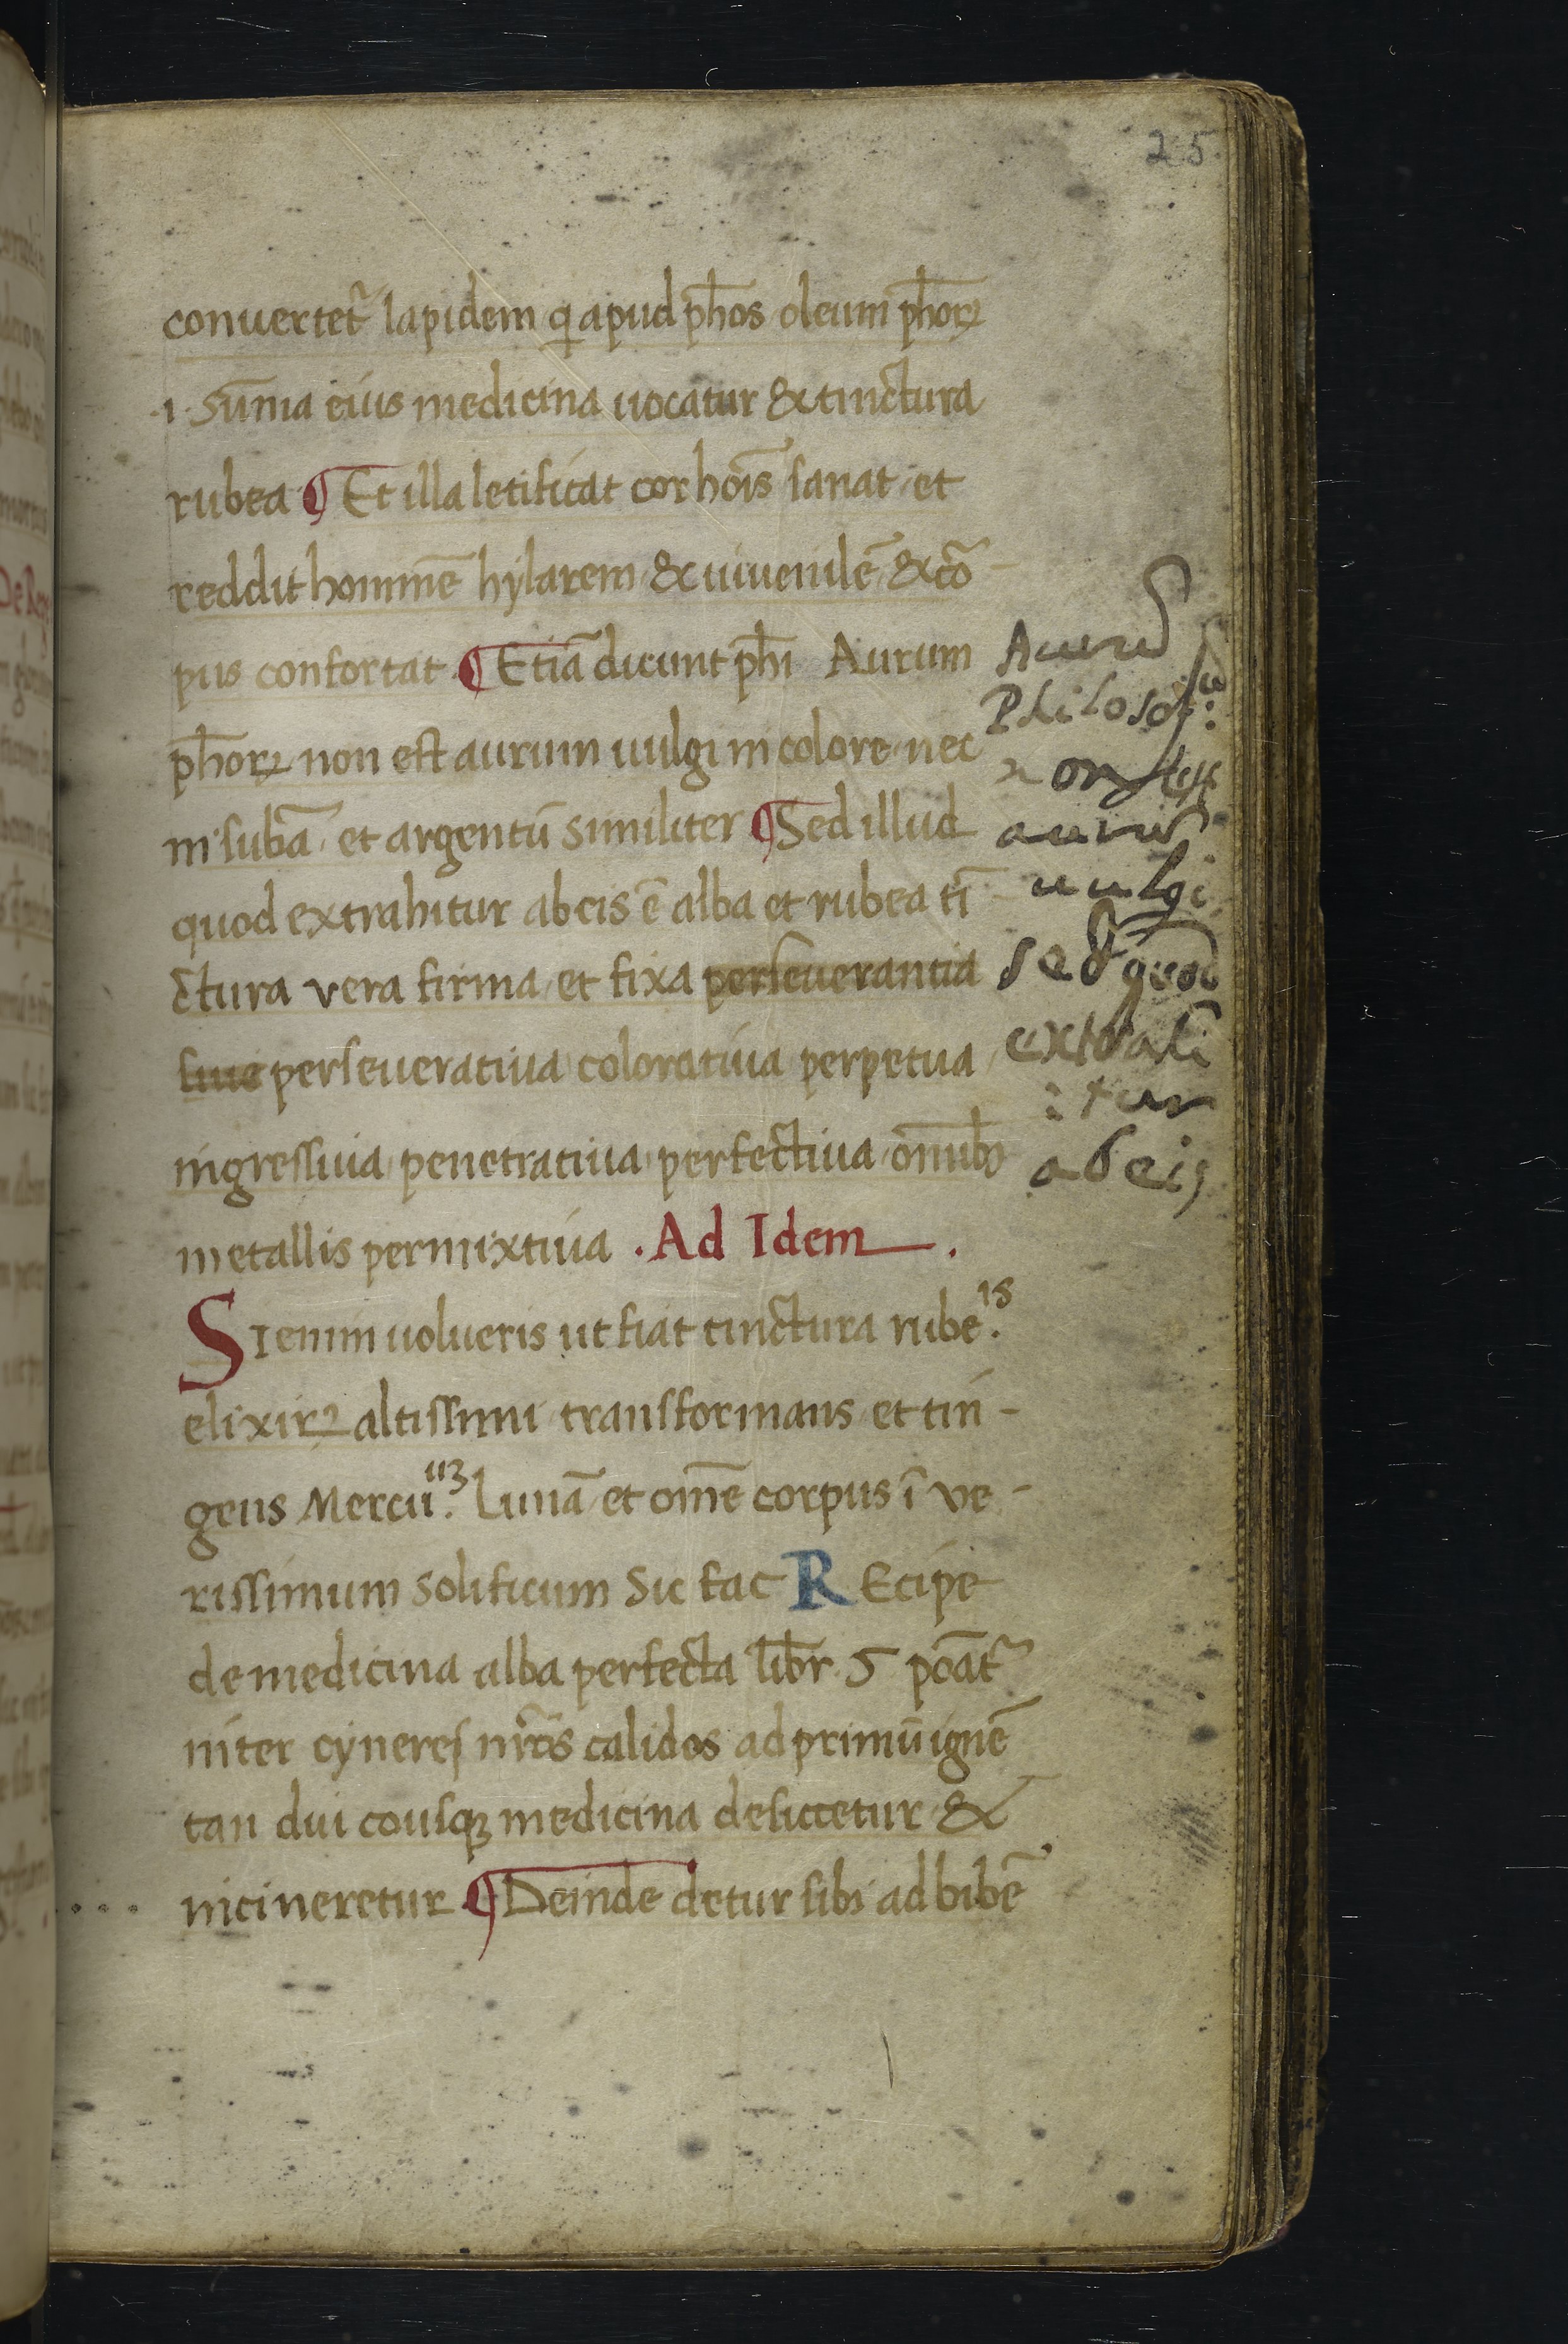 25
conuertet᷑ lapidem q apud ph̄os oleum ph̄oꝝ
.i. sum̄a eius medicina uocatur & tinctura
rubea ¶ Et illa letificat cor hoīs sanat et
reddit hominē hylarem & uiuenilē & cō-
pus confortat ¶ Etiā dicunt ph̄i Aurum
ph̄oꝝ non est aurum uulgi in colore nec
in subā et argentū similiter ¶ Sed illud
quod extrahitur ab eis ē alba et rubea tī-
ctura vera firma et fixa perseuerantia
siue perseueratiua coloratiua perpetua
ingressiua penetratiua perfectiua om̄ib⁊
metallis permixtiua . Ad Idem .
SI enim uolueris ut fiat tinctura rube.is
elixirꝝ altissimi transformans et tin-
gens Mercu.iuȝ Lunā et om̄e corpus ī ve-
rissimum solificum Sic fac REcipe
de medicina alba perfecta libr̄ 5 pōat᷑
inter cyneres nr̄os calidos ad primū ignē
tan diu cousqȝ medicina desiccetur &
incineretur ¶ Deinde detur sibi ad bibē
Aurum
Philoso
non est
aurum
uulgi
sed quod
extrahi
:tur
ab eis